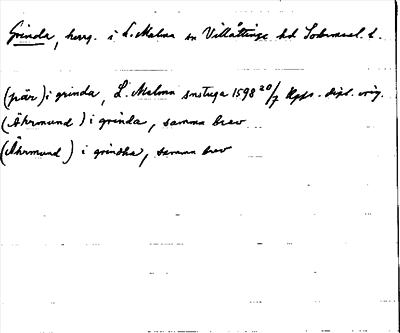 Grinda, herrg. i L. Malma sn Villåttinge hd Södermanl. l.
(pär) i grinda, L. Malma snstuga 1598 20/7 Kgsr. dipl. orig.
(Åhrmund) i grinda, samma brev
(Åhrmund) i grindha, samma brev